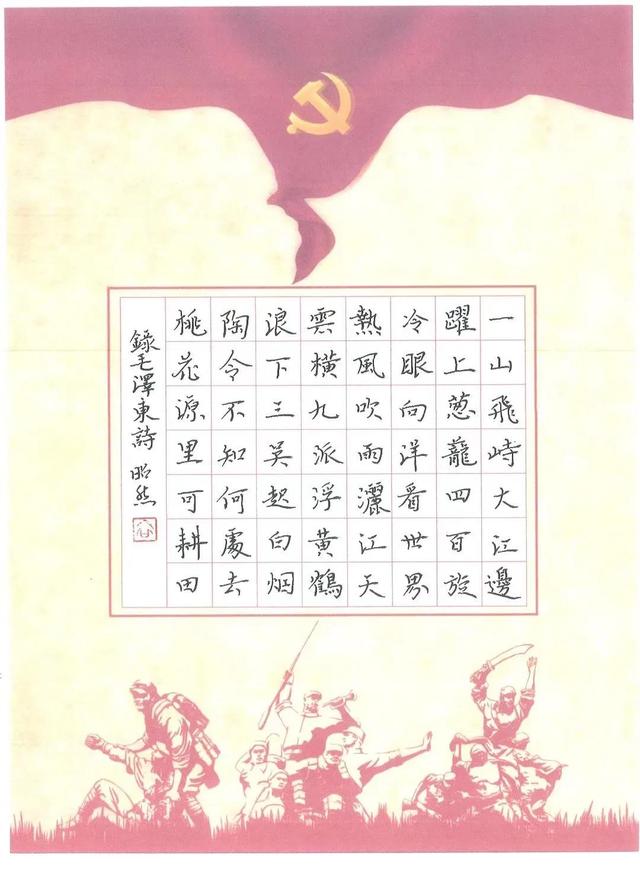 一山飛峙大江邊
躍上蔥蘢四百旋
冷眼向洋看世界
熱風吹雨灑江天
雲橫九派浮黃鶴
浪下三吳起白烟
陶令不知何處去
桃花源里可耕田
錄毛澤東詩 昭然